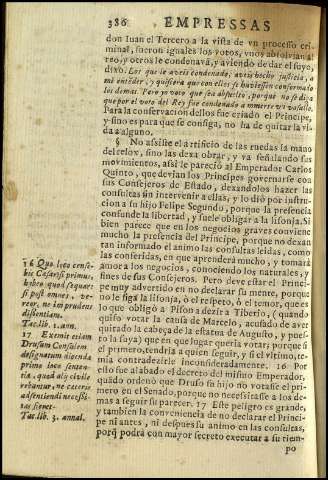 386 EMPRESSAS
don Iuan el Tercero a la vista de vn processo cri-
minal, fueron iguales los votos, vnos absolvian al
reo, y otros le condenavã, y aviendo de dar el suyo,
dixo. Los que le aveis condenado, aveis hecho justicia, a
mi entẽder, y quisiera que con ellos se huviessen conformado
los demas. Pero yo voto que sea absuelto, porque no se diga
que por el voto del Rey fue condenado a muerte vn vasallo.
Para la conservacion dellos fue criado el Principe,
y sino es para que se consiga, no ha de quitar la vi-
da a alguno.
§ No assiste al artificio de las ruedas la mano
del relox, sino las dexa obrar, y va señalando sus
movimientos, assi le pareciò al Emperador Carlos
Quinto, que devian los Principes governarse con
sus Consejeros de Estado, dexandolos hazer las
consultas sin intervenir a ellas, y lo diò por instruc-
cion a su hijo Felipe Segundo, porque la presencia
confunde la libertad, y suele obligar a la lisonja. Si
bien parece que en los negocios graves conviene
mucho la presencia del Principe, porque no dexan
tan informado el animo las consultas leidas, como
las conferidas, en que aprenderà mucho, y tomarà
amor a los negocios, conociendo los naturales, y
fines de sus Consejeros. Pero deve estar el Princi-
pe muy advertido en no declarar su mente, porque
no le siga la lisonja, ò el respeto, ò el temor, que es
lo que obligò a Pison a dezir a Tiberio, (quando
quiso votar la causa de Marcelo, acusado de aver
quitado la cabeça de la estatua de Augusto, y pues-
to la suya) que en que lugar queria votar; porque si
el primero, tendria a quien seguir, y si el vltimo, te-
mia contradezirle inconsideradamente. 16 Por
esto fue alabado el decreto del mismo Emperador,
quãdo ordenò que Druso su hijo no votasse el pri-
mero en el Senado, porque no necessitasse a los de-
mas a seguir su parecer. 17 Este peligro es grande,
y tambien la conveniencia de no declarar el Princi-
pe ni antes, ni despues su animo en las consultas,
porq̃ podrà con mayor secreto executar a su tiem-
po
16 Quo loco cense-
bis Cæsar? si primus,
habeo quod sequar:
si post omnes, ve-
reor, ne imprudens
dissentiam.
Tac. lib. 1. ann.
17 Exemit etiam
Drusum Consulem
designatum dicendæ
primo loco senten-
tiæ, quod alij civile
rebantur, ne cæteris
adsentiendi necessi-
tas fieret.
Tac. lib. 3. annal.